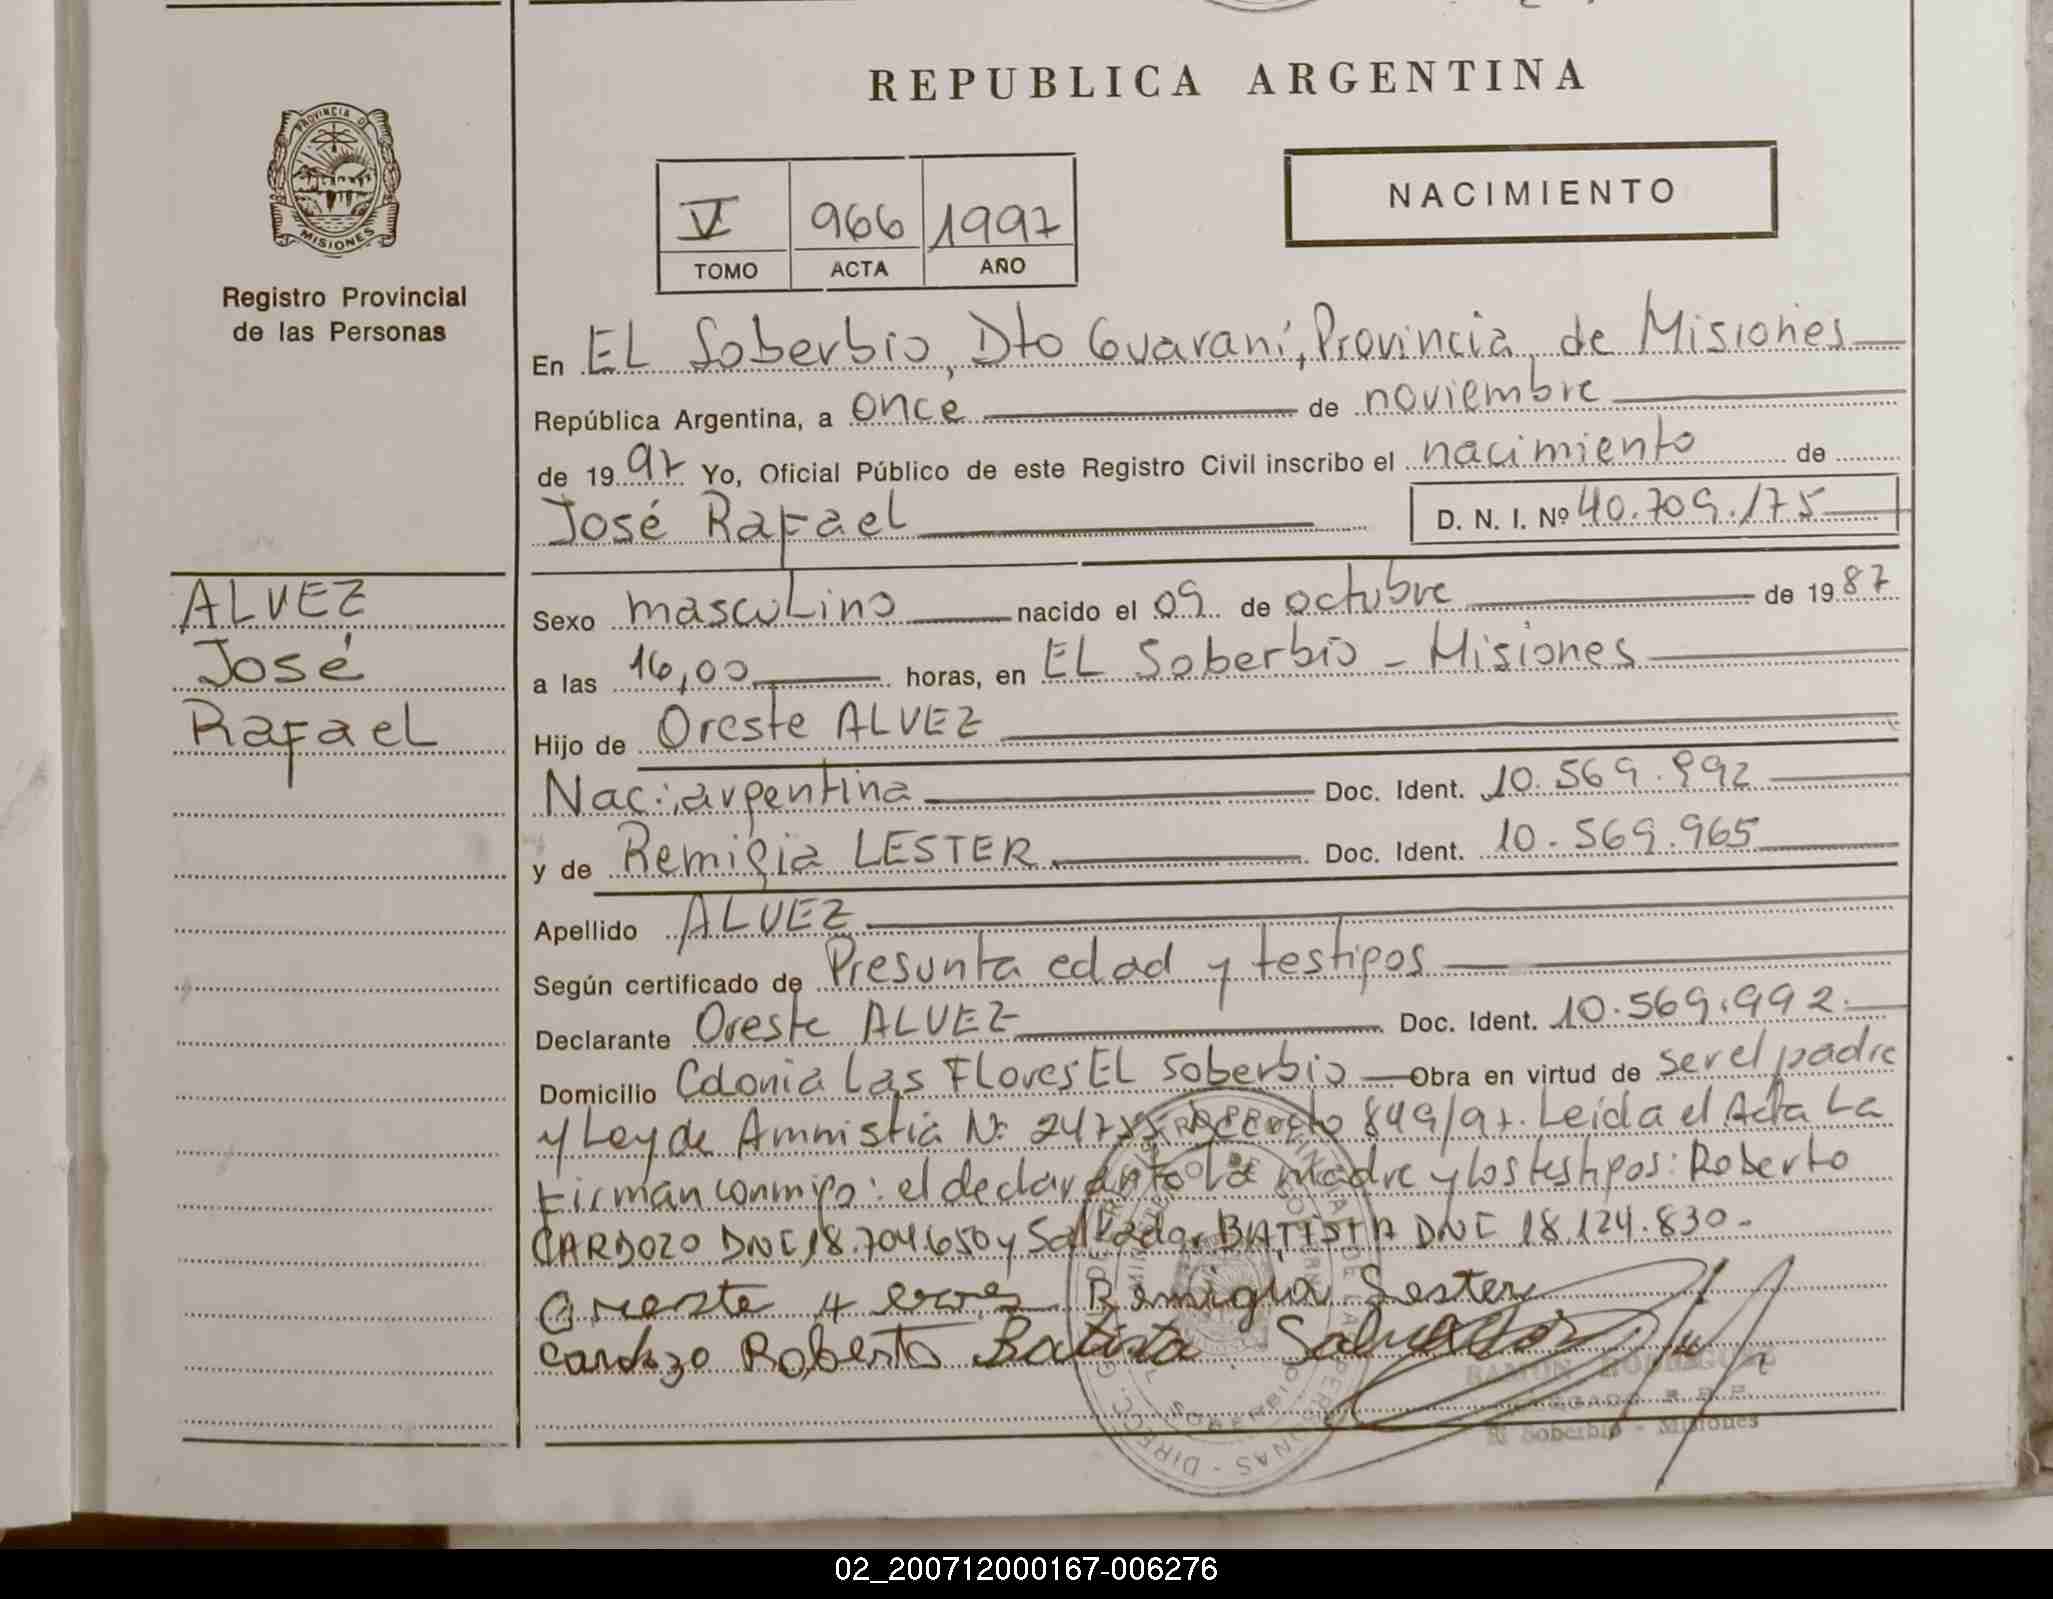 REPUBLICA ARGENTINA
PROVINCIA D
MISIONES
NACIMIENTO
V 966 1997
TOMO ACTA AÑO
Registro Provincial
de las Personas
En EL Soberbio, Dto Guaraní, Provincia de Misiones
República Argentina, a once de noviembre
de 1997 Yo, Oficial Público de este Registro Civil inscribo el nacimiento de
José Rafael D. N. I. Nº 40.709.175
ALVEZ
José
Rafael
Sexo masculino nacido el 09 de octubre de 1987
a las 16,00 horas, en EL Soberbio - Misiones
Hijo de Oreste ALVEZ
Nac: argentina Doc. Ident. 10.569.992
y de Remigia LESTER Doc. Ident. 10.569.965
Apellido ALVEZ
Según certificado de Presunta edad y testigos
Declarante Oreste ALVEZ Doc. Ident. 10.569.992
Domicilio Colonia Las Flores EL Soberbio Obra en virtud de ser el padre
y Ley de Amnistia Nº 24755 Decreto 849/97. Leida el Acta La
firman conmigo: el declarante La madre y los testigos: Roberto
CARDOZO DNI 18.704.650 y Salvador BATISTA DNI 18.124.830-
Oreste Remigia Lester
Cardozo Roberto Batista Salvador
RAMON RODRIGUEZ
El Soberbio - Misiones
02_200712000167-006276